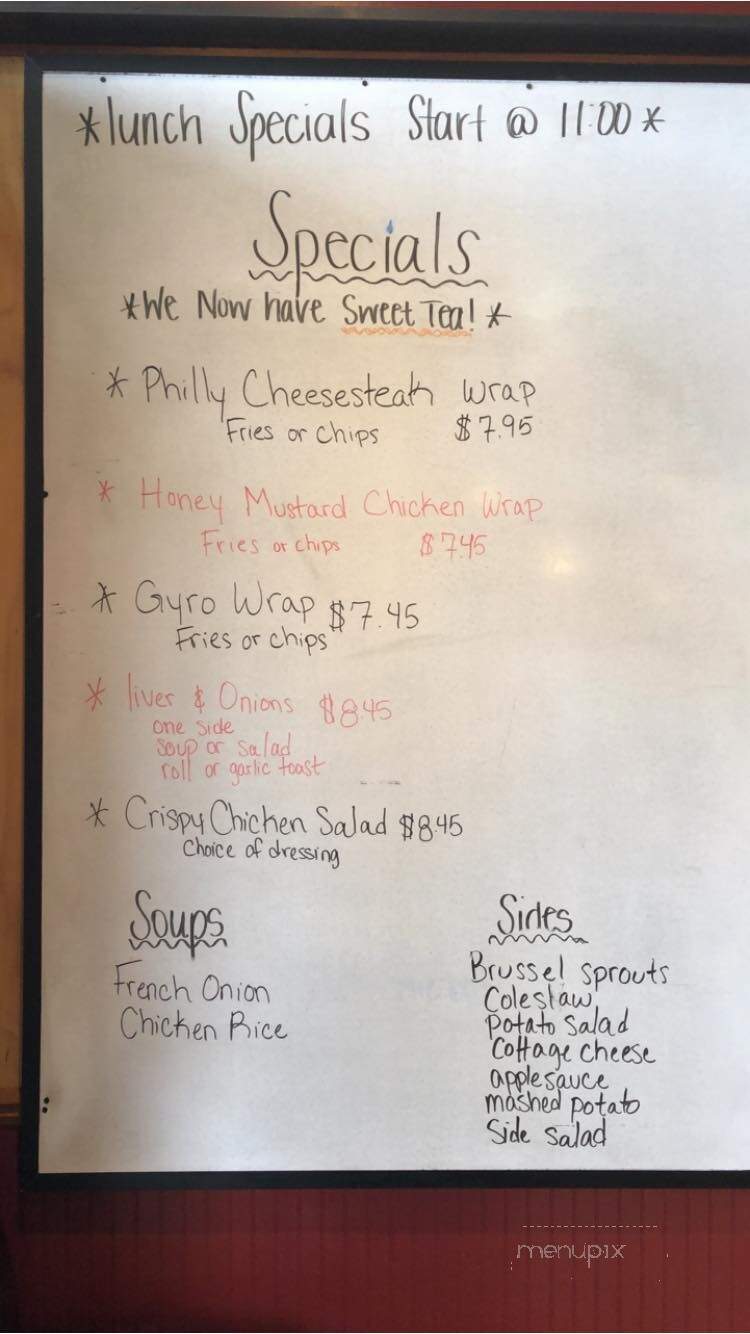 *lunch Specials Start @ 11:00*
Specials
*We Now have Sweet Tea!*
* Philly Cheesesteak Wrap
Fries or Chips $7.95
* Honey Mustard Chicken Wrap
Fries or chips $7.45
* Gyro Wrap $7.45
Fries or chips
* liver & Onions $8.45
one side
soup or salad
roll or garlic toast
* Crispy Chicken Salad $8.45
Choice of dressing
Soups
French Onion
Chicken Rice
Sides
Brussel sprouts
Coleslaw
potato salad
Cottage cheese
applesauce
mashed potato
Side Salad
menupix